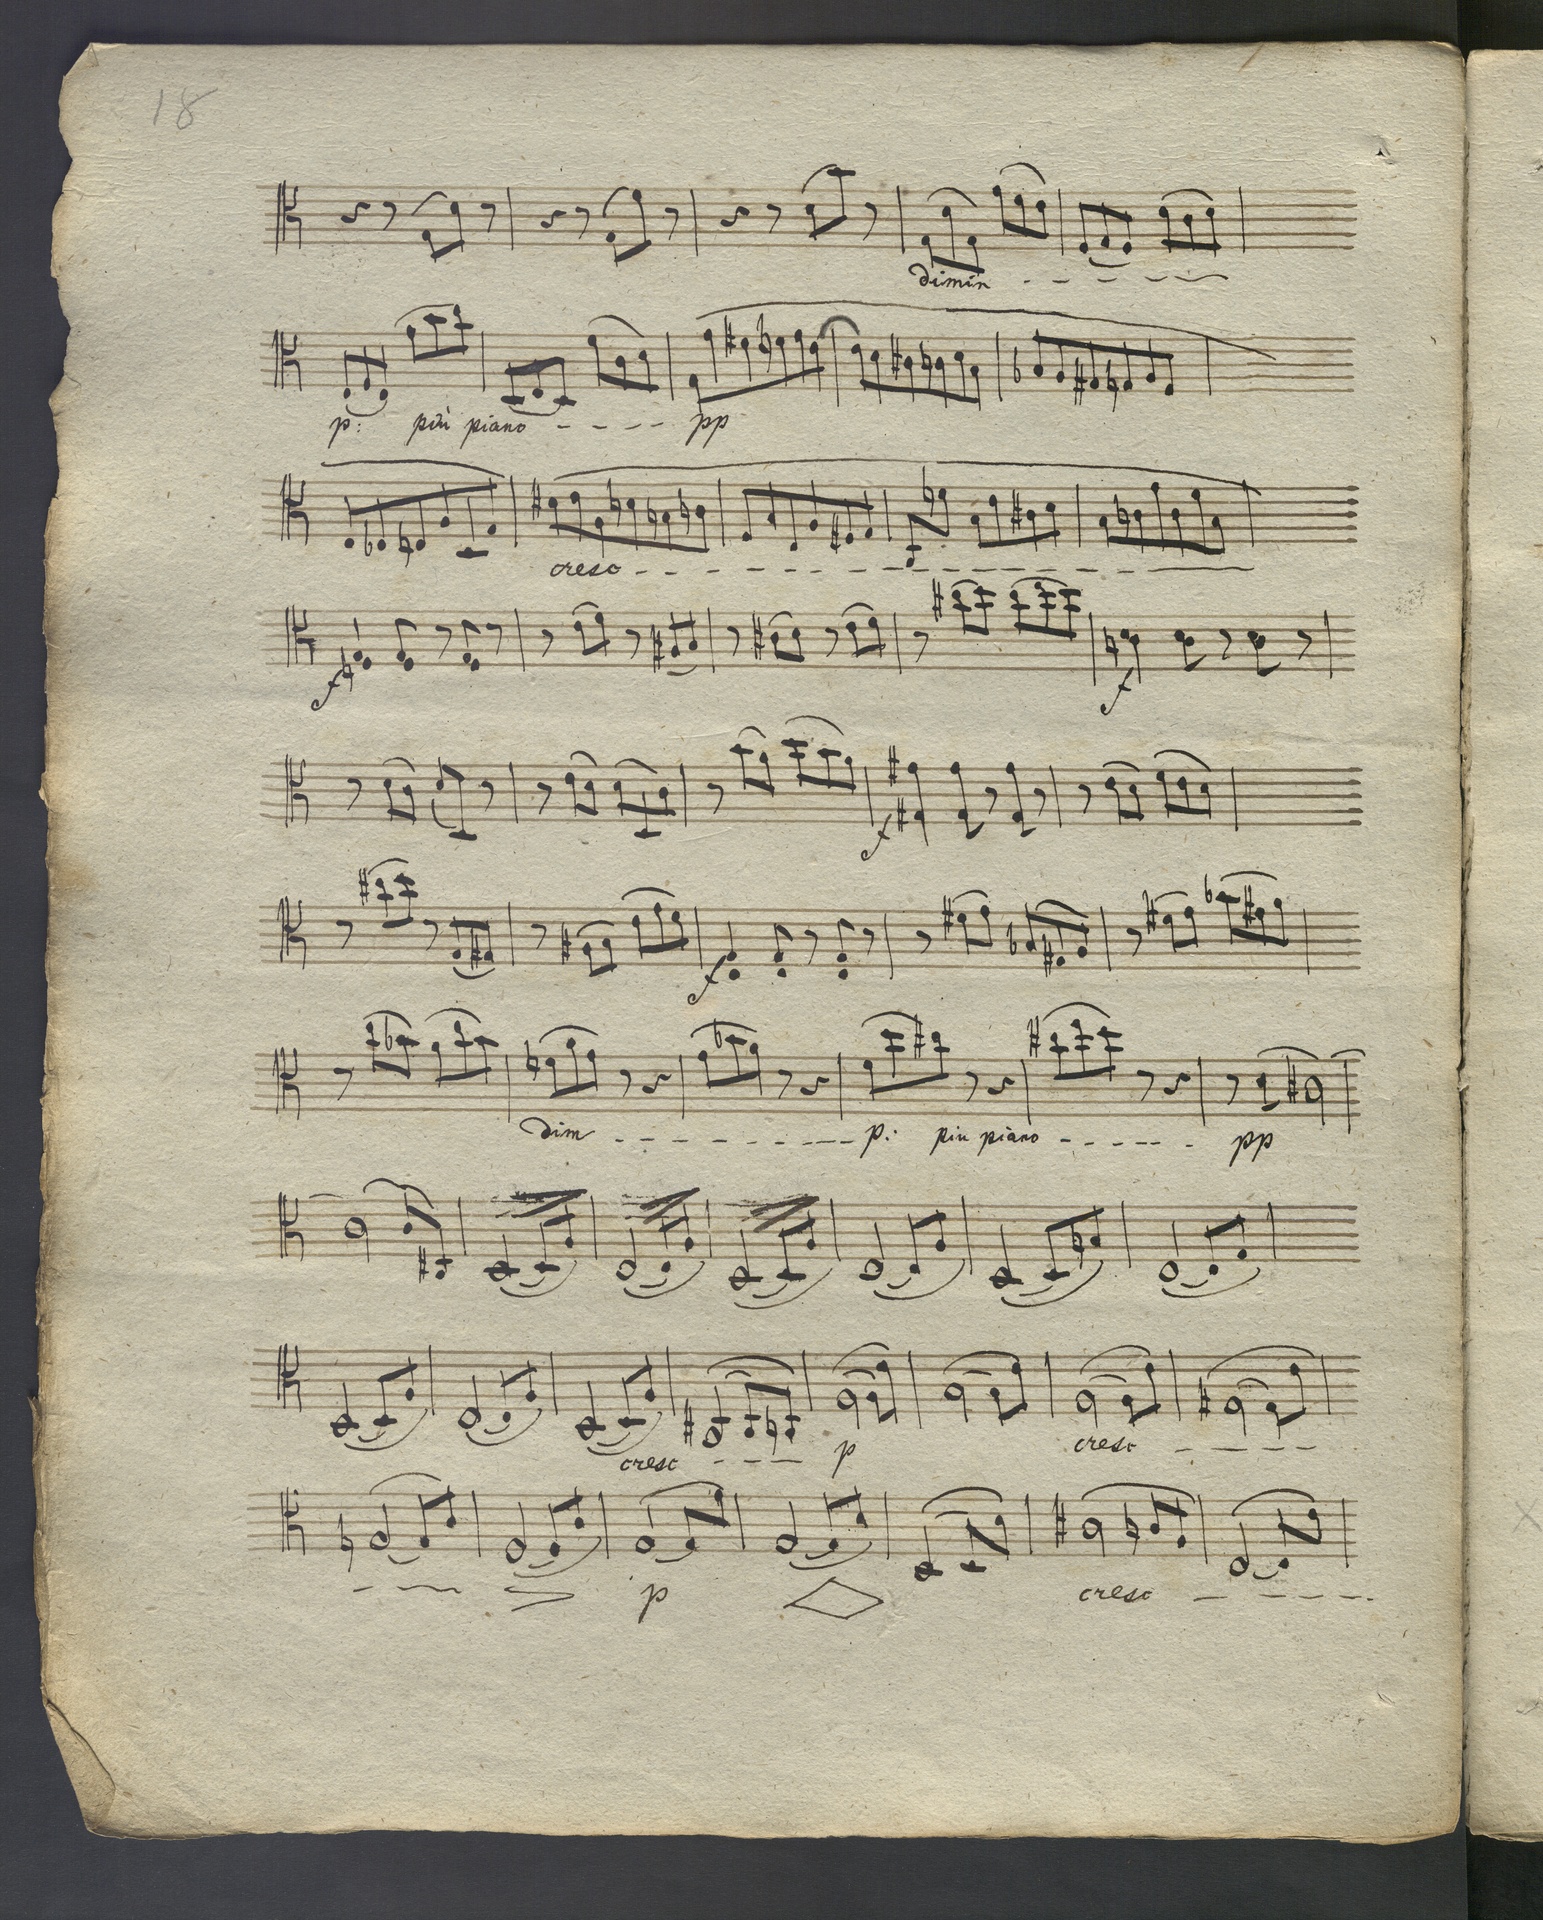 18
dimin
p: più piano pp
cresc
f f
f
f
dim p: piu piano pp
cresc p cresc
p cresc